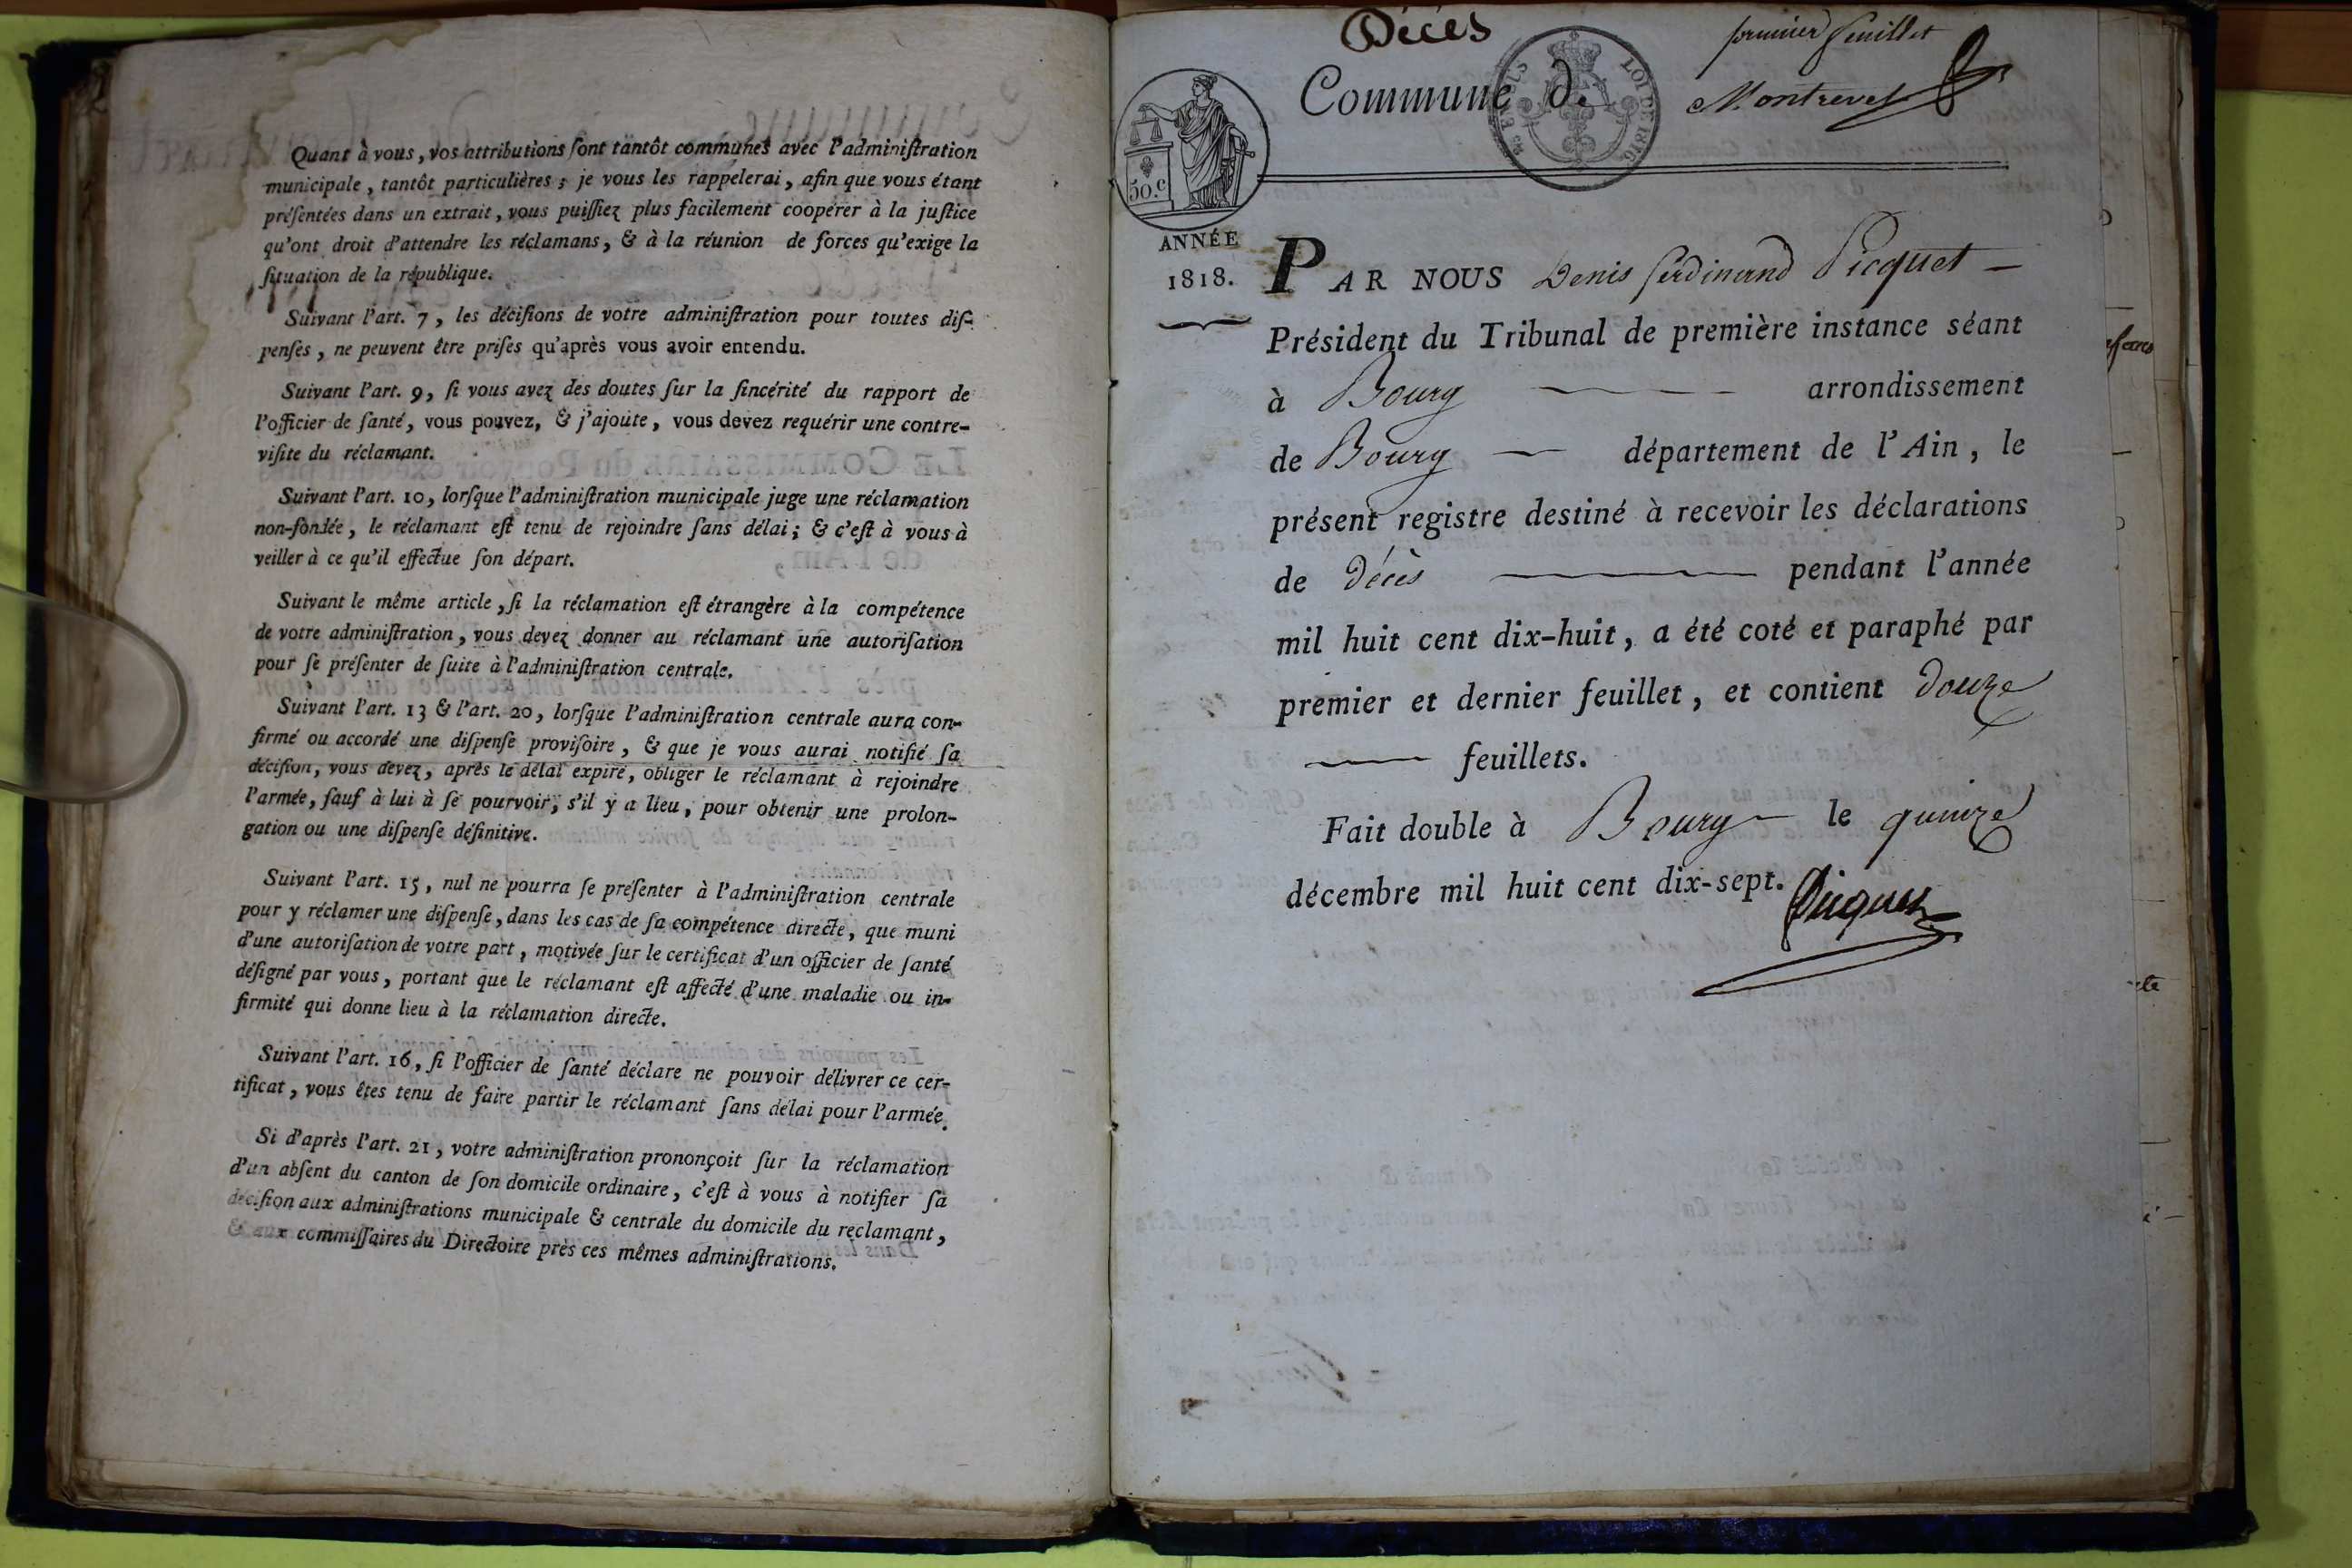 Quant à vous, vos attributions ſont tantôt communes avec l'adminiſtration
municipale, tantôt particulières; je vous les rappelerai, afin que vous étant
préſentées dans un extrait, vous puiſſiez plus facilement coopérer à la juſtice
qu'ont droit d'attendre les réclamans, & à la réunion de forces qu'exige la
ſituation de la république.
Suivant l'art. 7, les déciſions de votre adminiſtration pour toutes diſ-
penſes, ne peuvent être priſes qu'après vous avoir entendu.
Suivant l'art. 9, ſi vous avez des doutes ſur la ſincérité du rapport de
l'officier de ſanté, vous pouvez, & j'ajoute, vous devez requérir une contre-
viſite du réclamant.
Suivant l'art. 10, lorſque l'adminiſtration municipale juge une réclamation
non-fondée, le réclamant eſt tenu de rejoindre ſans délai; & c'eſt à vous à
veiller à ce qu'il effectue ſon départ.
Suivant le même article, ſi la réclamation eſt étrangère à la compétence
de votre adminiſtration, vous devez donner au réclamant une autoriſation
pour ſe préſenter de ſuite à l'adminiſtration centrale.
Suivant l'art. 13 & l'art. 20, lorſque l'adminiſtration centrale aura con-
firmé ou accordé une diſpenſe proviſoire, & que je vous aurai notifié ſa
déciſion, vous devez, après le délai expiré, obliger le réclamant à rejoindre
l'armée, ſauf à lui à ſe pourvoir, s'il y a lieu, pour obtenir une prolon-
gation ou une diſpenſe définitive.
Suivant l'art. 15, nul ne pourra ſe préſenter à l'adminiſtration centrale
pour y réclamer une diſpenſe, dans les cas de ſa compétence directe, que muni
d'une autoriſation de votre part, motivée ſur le certificat d'un officier de ſanté
déſigné par vous, portant que le réclamant eſt affecté d'une maladie ou in-
firmité qui donne lieu à la réclamation directe.
Suivant l'art. 16, ſi l'officier de ſanté déclare ne pouvoir délivrer ce cer-
tificat, vous êtes tenu de faire partir le réclamant ſans délai pour l'armée.
Si d'après l'art. 21, votre adminiſtration prononçoit ſur la réclamation
d'un abſent du canton de ſon domicile ordinaire, c'eſt à vous à notifier ſa
déciſion aux adminiſtrations municipale & centrale du domicile du reclamant,
& aux commiſſaires du Directoire près ces mêmes adminiſtrations.
Décès
premier feuillet
Commune de Montrevel
LOI DE 1816.
50.c
ANNÉE
1818.
PAR NOUS Denis ferdinand Picquet
Président du Tribunal de première instance séant
à Bourg arrondissement
de Bourg département de l'Ain, le
présent registre destiné à recevoir les déclarations
de décès pendant l'année
mil huit cent dix-huit, a été coté et paraphé par
premier et dernier feuillet, et contient douze
feuillets.
Fait double à Bourg le quinze
décembre mil huit cent dix-sept.
Picquet